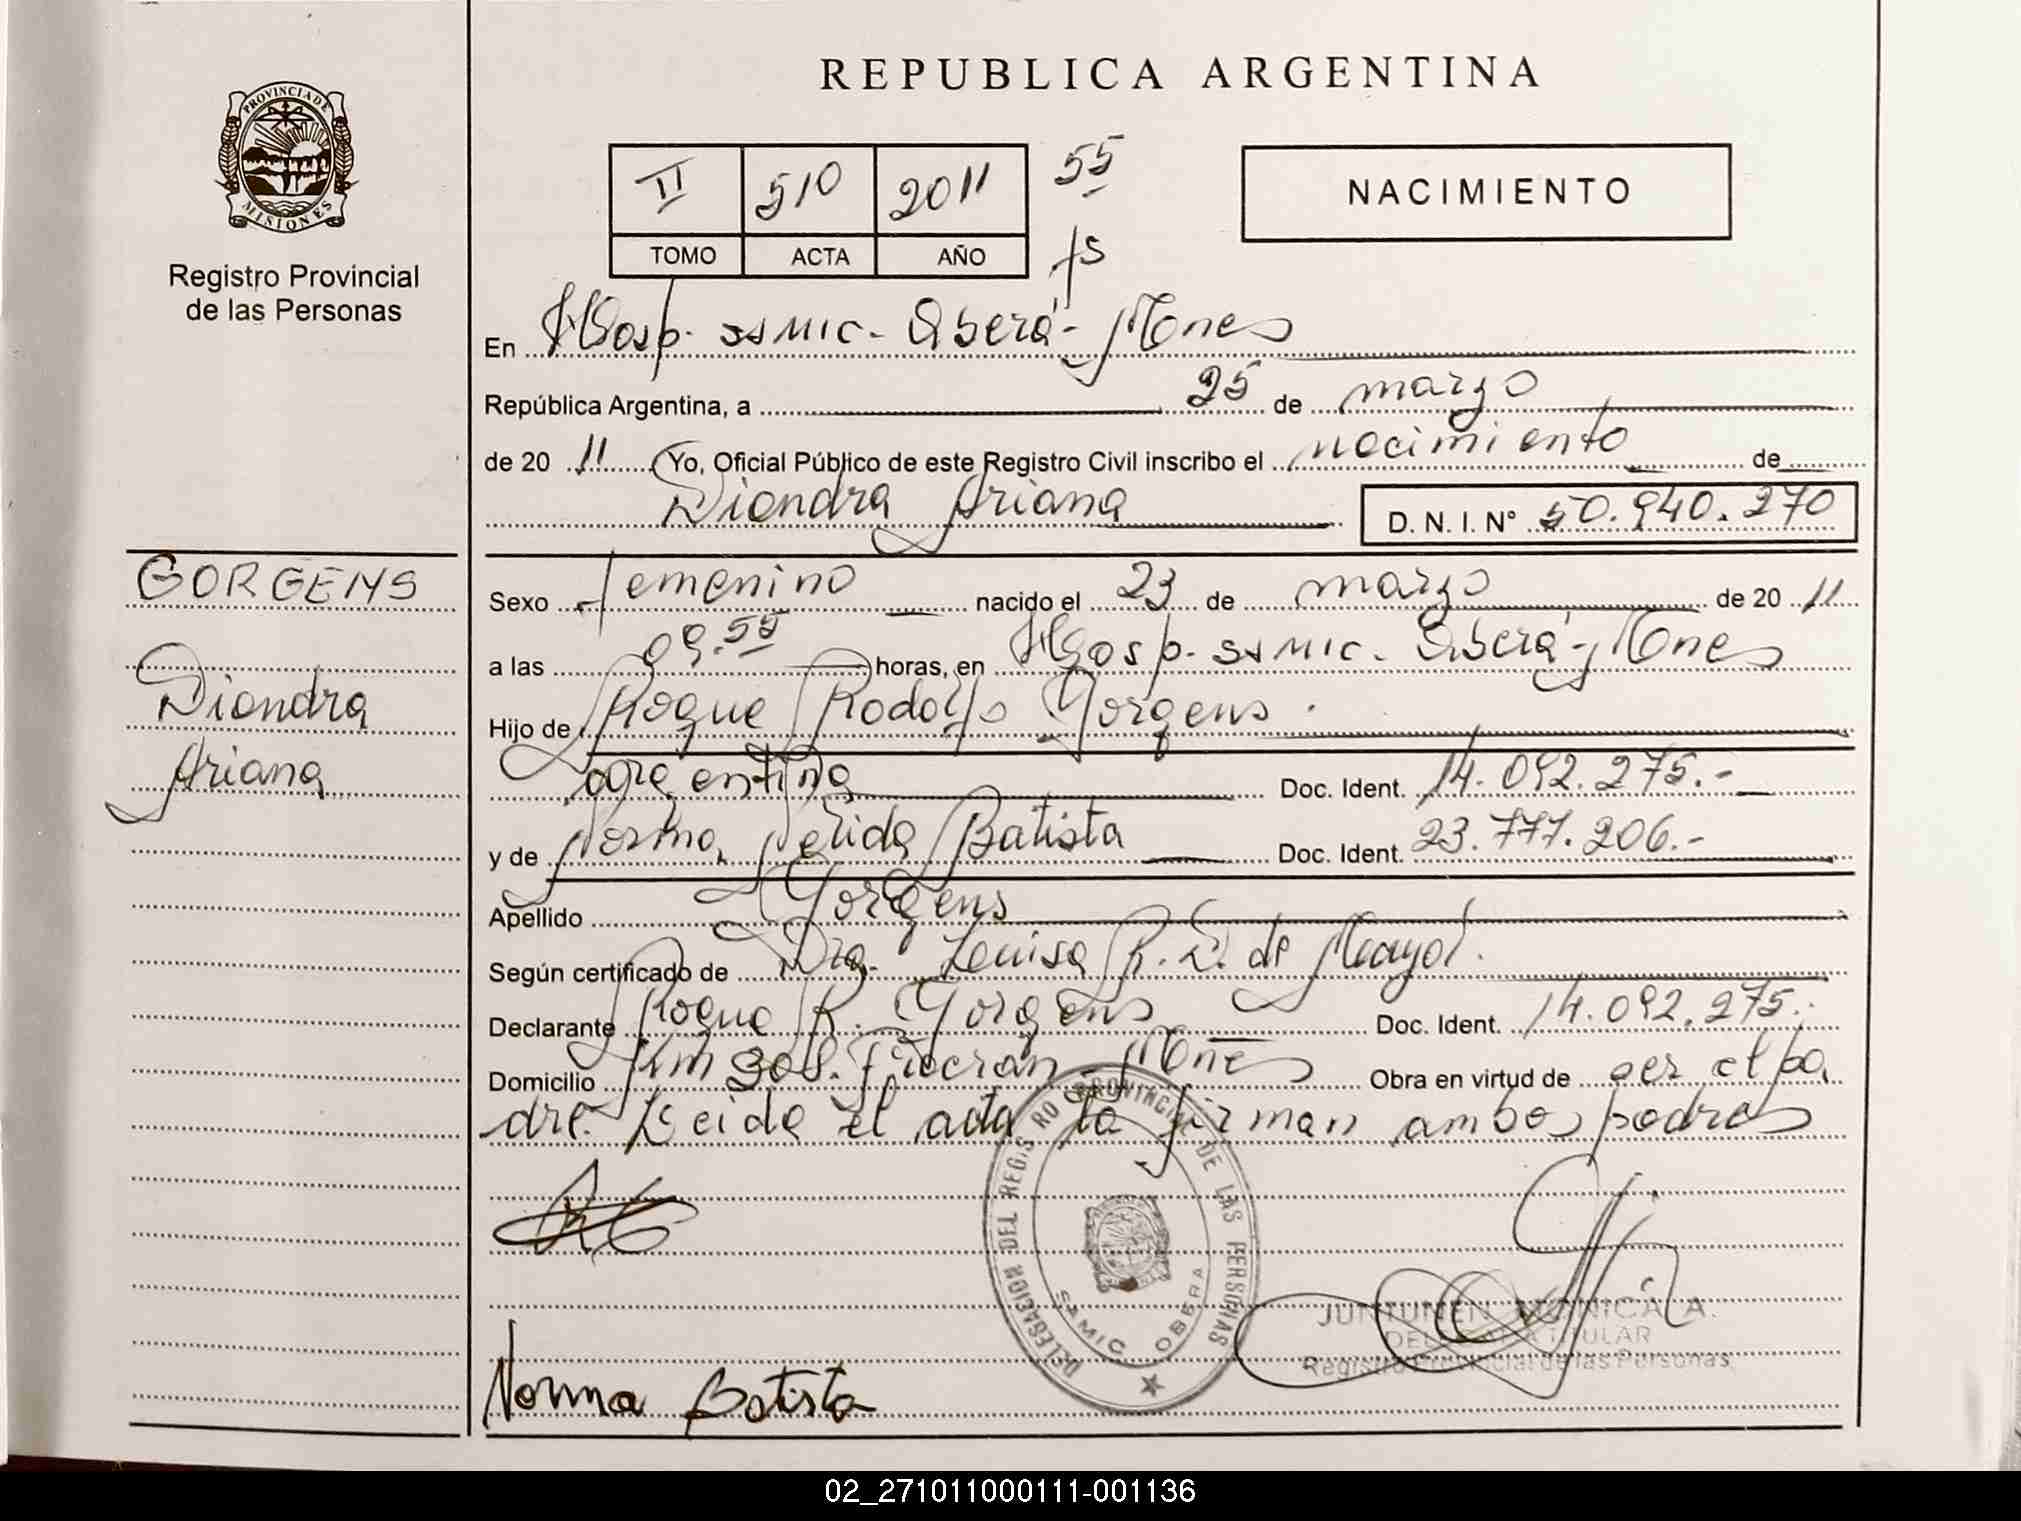 REPUBLICA ARGENTINA
PROVINCIA DE
MISIONES
Registro Provincial
de las Personas
II 510 2011 55
TOMO ACTA AÑO fs
NACIMIENTO
En Hosp. SAMIC. Oberá - Mones
República Argentina, a 25 de marzo
de 20 11 Yo, Oficial Público de este Registro Civil inscribo el nacimiento de
Diandra Ariana D. N. I. Nº 50.940.270
GORGENS
Diandra
Ariana
Sexo femenino nacido el 23 de marzo de 20 11
a las 09.55 horas, en Hosp. SAMIC. Oberá - Mones
Hijo de Roque Rodolfo Gorgens
argentina Doc. Ident. 14.092.275.-
y de Norma Nelida Batista Doc. Ident. 23.777.206.-
Apellido Gorgens
Según certificado de Dra. Luisa R. D. de Mayol.
Declarante Roque R. Gorgens Doc. Ident. 14.092.275.-
Domicilio Km 308. Fracrán - Mones Obra en virtud de ser el pa
dre. Leida el acta la firman ambos padres
DELEGACION DEL REGISTRO PROVINCIAL DE LAS PERSONAS
SAMIC OBERA
JUNTUNEN MONICA A.
DELEGADA TITULAR
Registro Provincial de las Personas
Norma Batista
02_271011000111-001136